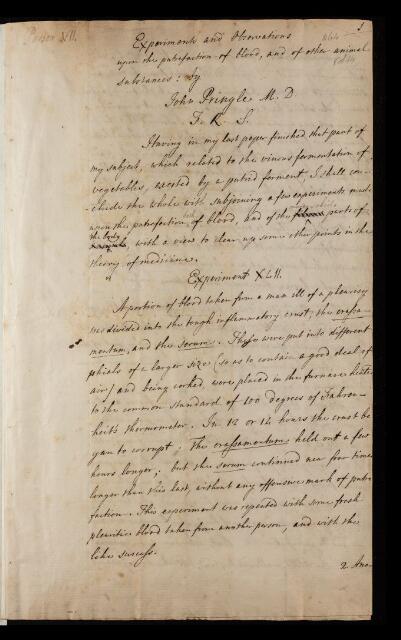 Paper XII.
1
Experiments and Observations
upon the putrefaction of blood, and of other animal
substances: by
John Pringle M. D.
F. R. S.
Having in my last paper finished that part of
my subject, which related to the vinous fermentation of
vegetables, excited by a putrid ferment, I shall con-
-clude the whole with subjoining a few experiments made
upon the putrefaction of blood, and of the parts of
the body
, with a view to clear up some other points in the
theory of medicine.
Experiment XLII.
A portion of blood taken from a man ill of a pleurisy
was divided into the tough inflammatory crust, the crassa-
mentum, and the serum. These were put into different
phials of a larger size (so as to contain a good deal of
air) and being corked were placed in the furnace heated
to the common standard of 100 degrees of Fahren-
heit's thermometer. In 12 or 14 hours the crust be
gan to corrupt; the crassamentum held out a few
hours longer; but the serum continued near four times
longer than this last, without any offensive mark of putre
faction. This experiment was repeated with some fresh
pleuritic blood taken from another person, and with the
like success.
2 Ano-